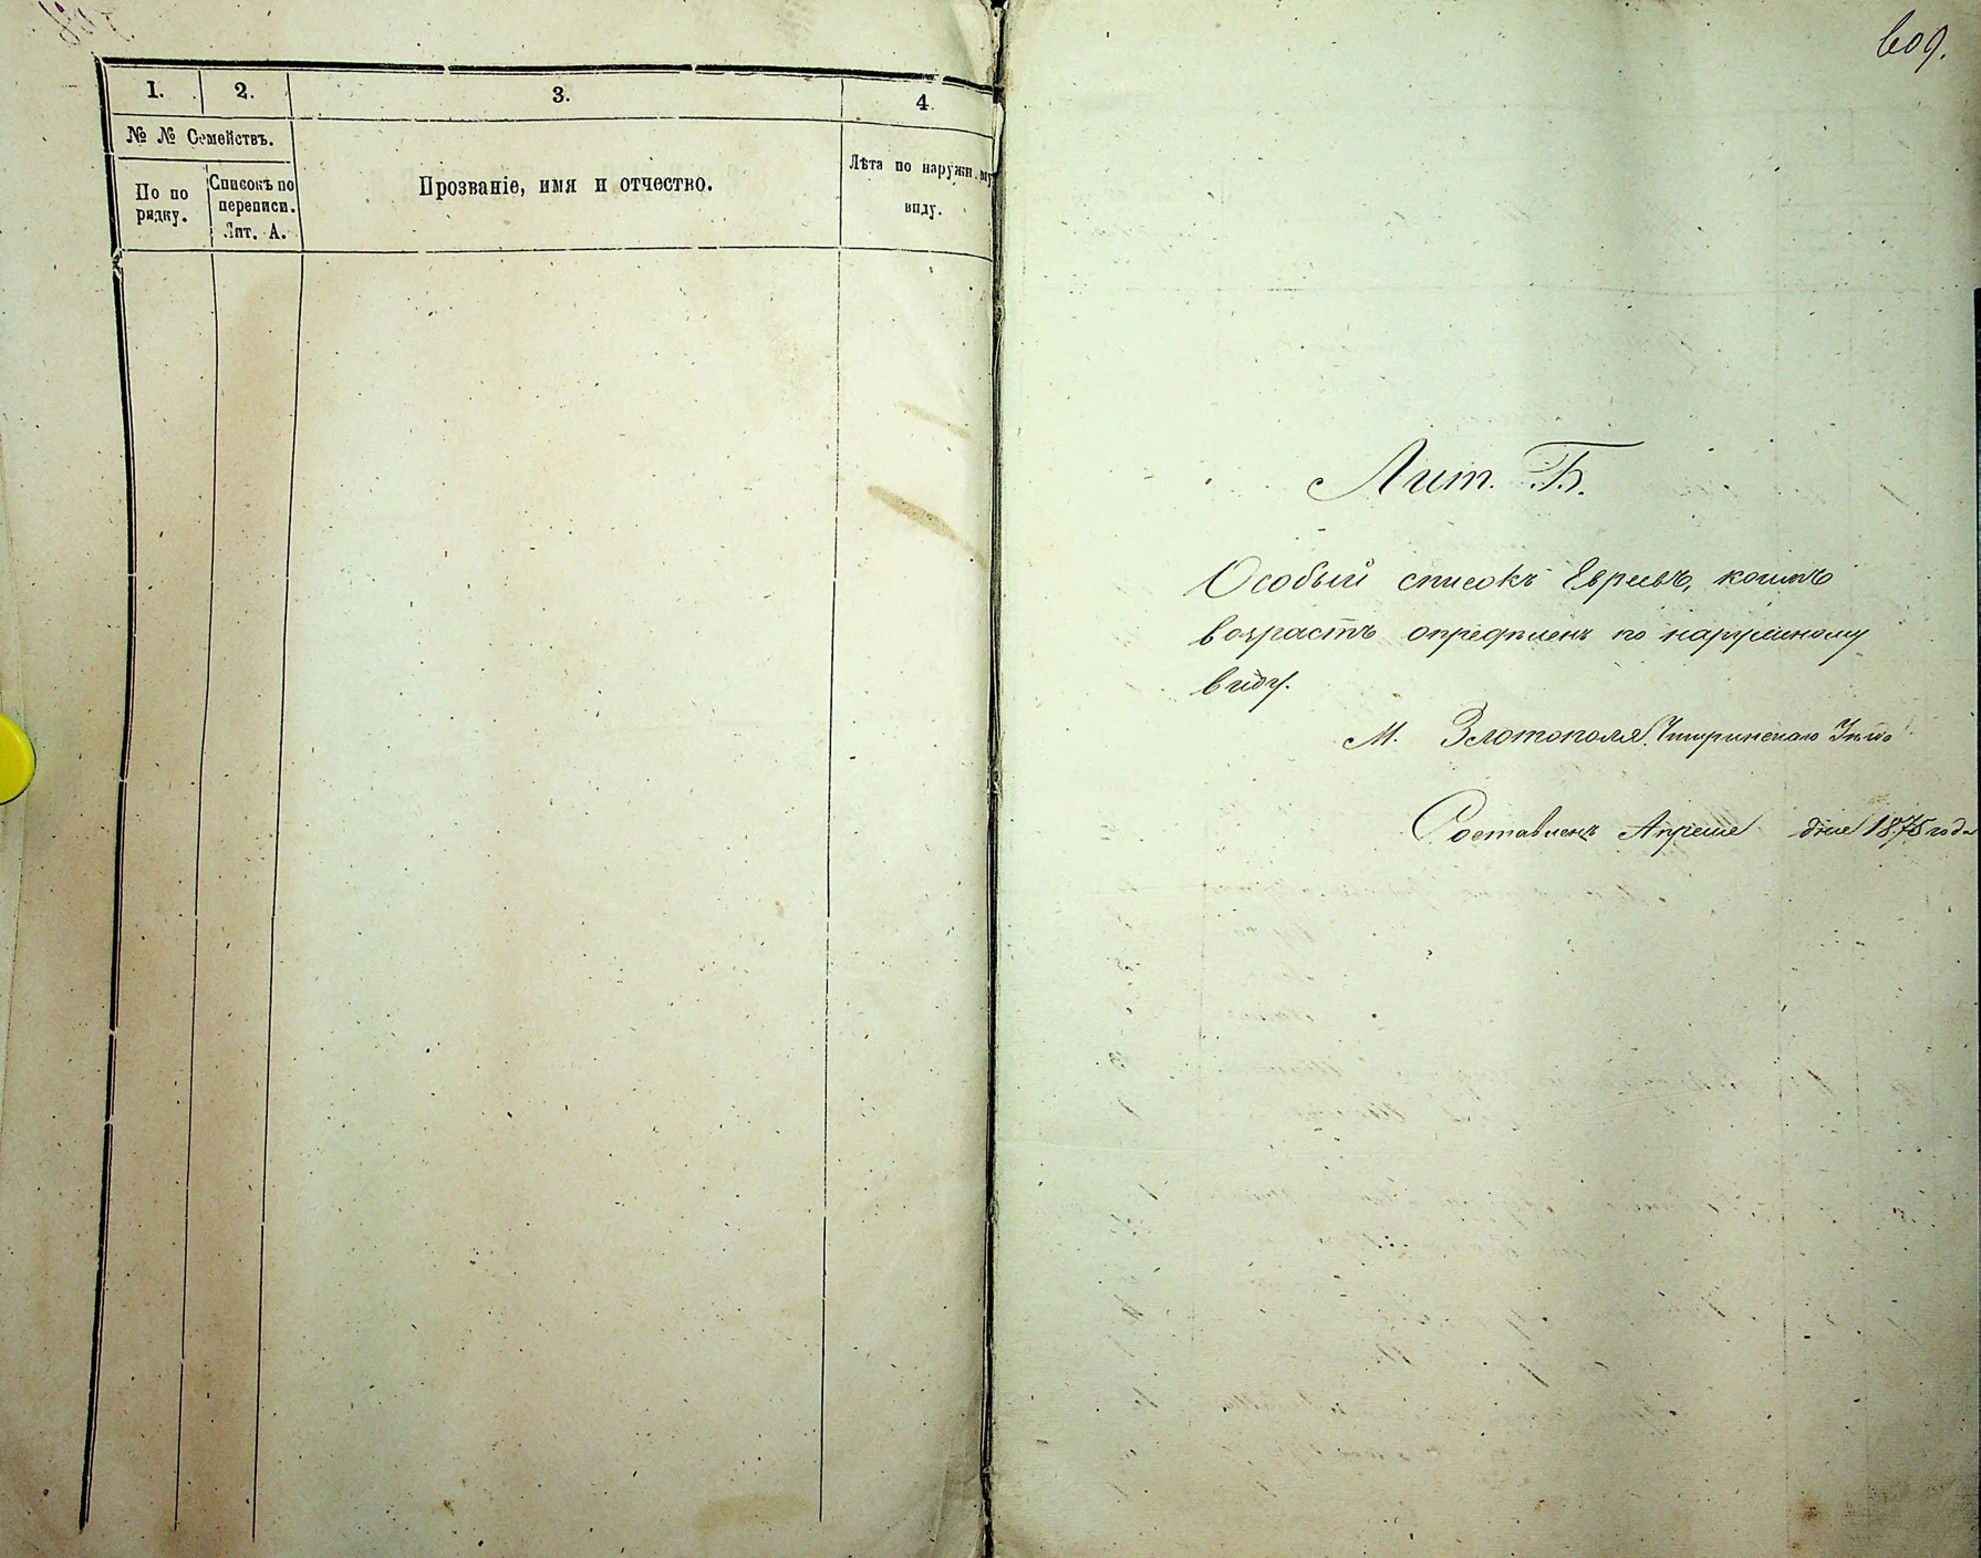 1. 2. 3. 4.
№ № Семействъ.
По по
рядку.
Списокъ по
переписи.
Лит. А.
Прозваніе, имя и отчество.
Лѣта по наружн му
виду.
609.
Лит. Б.
Особый списокъ Евреевъ, коихъ
возрастъ опредѣленъ по наружному
виду.
М. Златополя, Чигиринскаго Уѣзда
Составленъ Апрѣля дня 1875 года